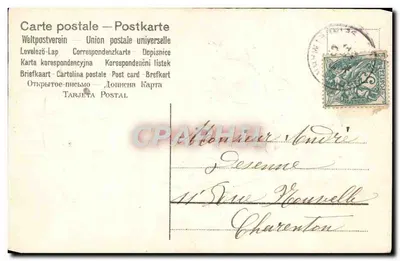 Carte postale – Postkarte
Weltpostverein – Union postale universelle
Levelező-Lap Correspondenzkarte Dopisnice
Karta korespondencyjna Korespondenčni listek
Briefkaart - Cartolina postale - Post card - Brefkort
Открытое-письмо Дописна Карта
TARJETA POSTAL
Monsieur André
Desenne
11 Rue Nouvelle
Charenton